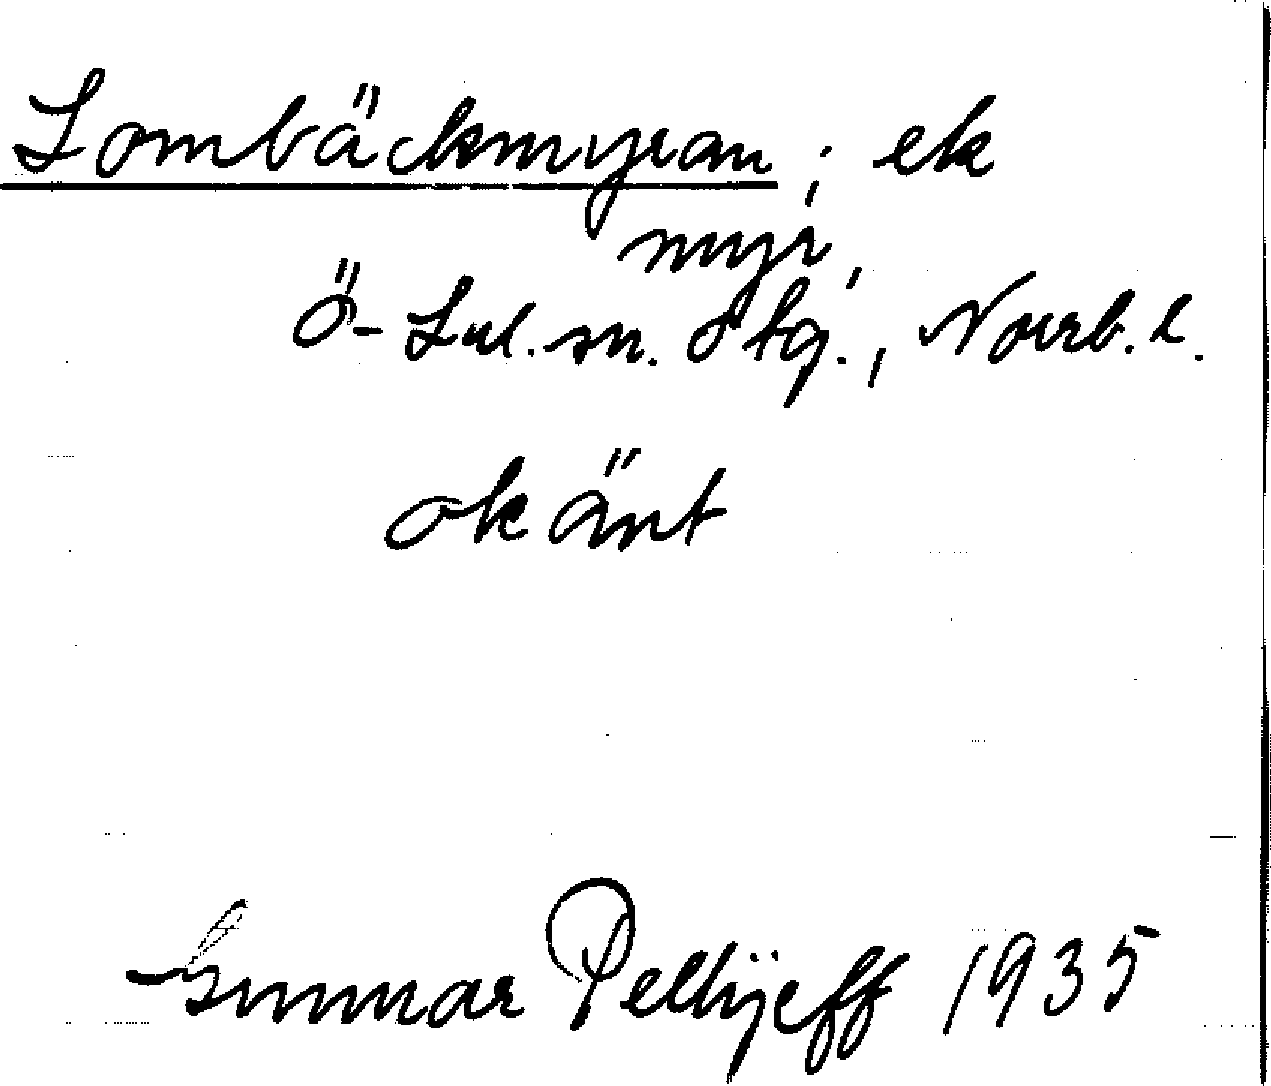 Lombäckmyran; ek
myr,
Ö-Lul. sn. o tg., Norrb. l.
okänt
Gunnar Pellijeff 1935